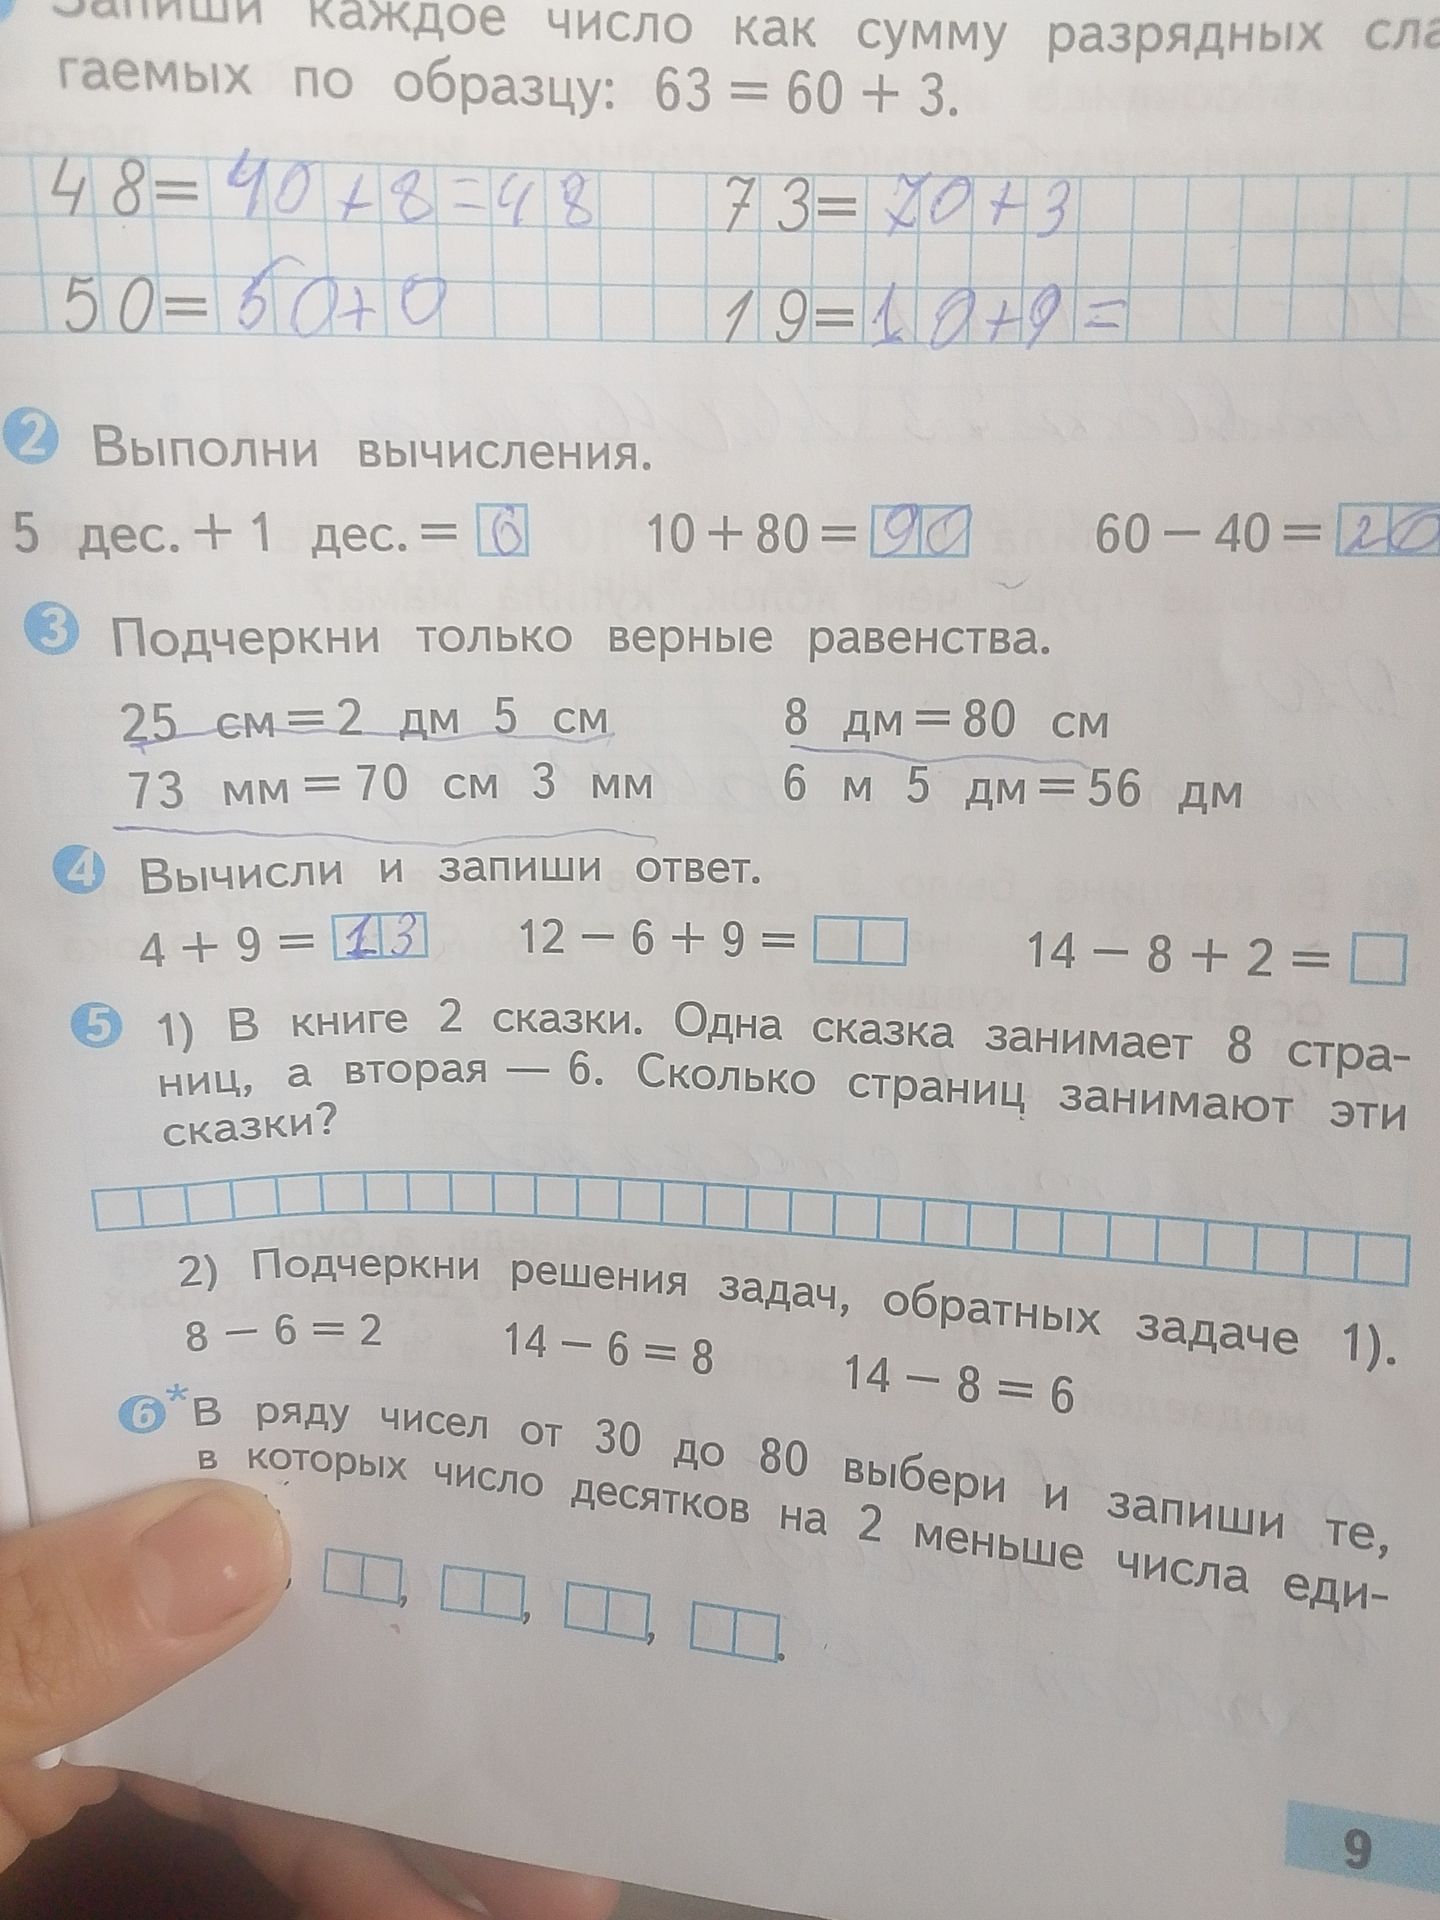 Запиши каждое число как сумму разрядных сла-
гаемых по образцу: 63 = 60 + 3.
48 = 40 + 8 = 48 73 = 70 + 3
50 = 50 + 0 19 = 10 + 9 =
2 Выполни вычисления.
5 дес. + 1 дес. = 6 10 + 80 = 90 60 − 40 = 20
3 Подчеркни только верные равенства.
25 см = 2 дм 5 см 8 дм = 80 см
73 мм = 70 см 3 мм 6 м 5 дм = 56 дм
4 Вычисли и запиши ответ.
4 + 9 = 13 12 − 6 + 9 = 14 − 8 + 2 =
5 1) В книге 2 сказки. Одна сказка занимает 8 стра-
ниц, а вторая — 6. Сколько страниц занимают эти
сказки?
2) Подчеркни решения задач, обратных задаче 1).
8 − 6 = 2 14 − 6 = 8 14 − 8 = 6
6* В ряду чисел от 30 до 80 выбери и запиши те,
в которых число десятков на 2 меньше числа еди-
, , , , .
9